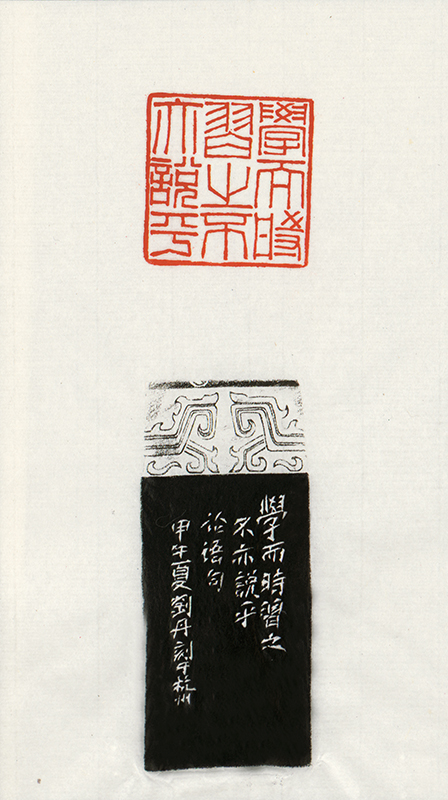 學而時
習之不
亦說乎
學而時習之
不亦說乎
論語句
甲午夏劉丹刻於杭州